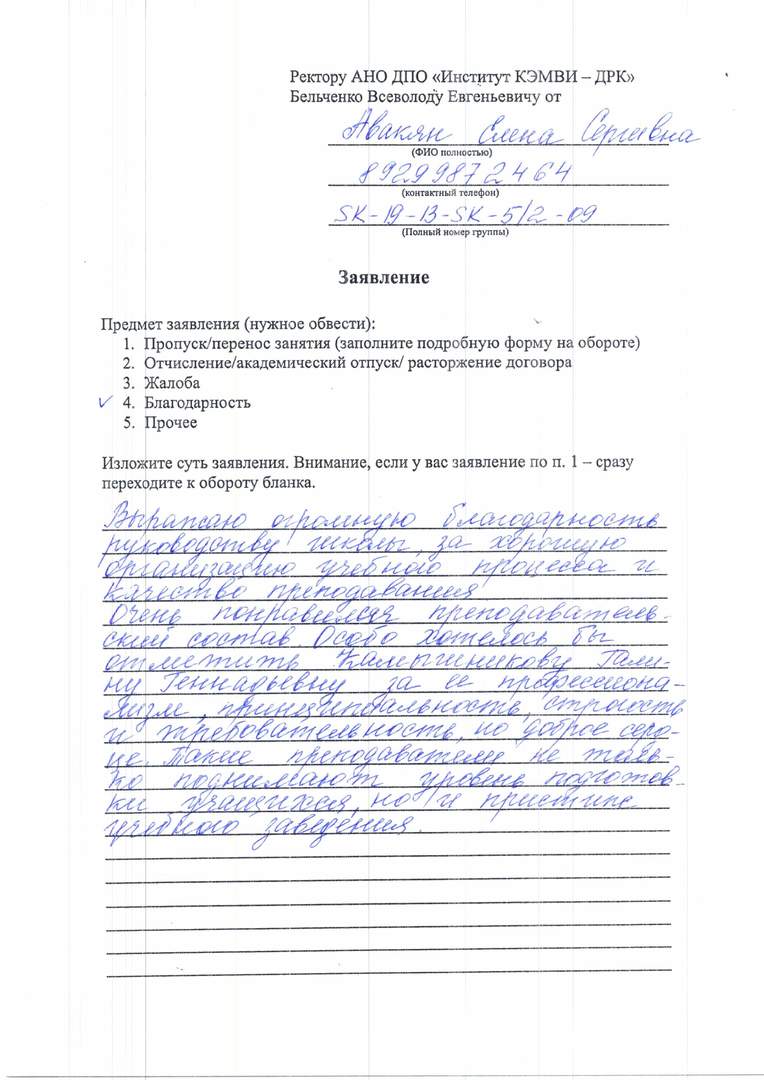 Ректору АНО ДПО «Институт КЭМВИ – ДРК»
Бельченко Всеволоду Евгеньевичу от
Авакян Елена Сергеевна
(ФИО полностью)
89299872464
(контактный телефон)
SK-19-13-SK-5/2-09
(Полный номер группы)
Заявление
Предмет заявления (нужное обвести):
1. Пропуск/перенос занятия (заполните подробную форму на обороте)
2. Отчисление/академический отпуск/ расторжение договора
3. Жалоба
4. Благодарность
5. Прочее
Изложите суть заявления. Внимание, если у вас заявление по п. 1 – сразу
переходите к обороту бланка.
Выражаю огромную благодарность
руководству школы, за хорошую
организацию учебного процесса и
качество преподавания
Очень понравился преподаватель-
ский состав Особо хотелось бы
отметить Калыгинникову Гали-
ну Геннадьевну за её профессиона-
лизм, принципиальность, строгость
и требовательность, но доброе серд-
це. Такие преподаватели не толь-
ко поднимают уровень подготов-
ки учащихся, но и пристиж
учебного заведения.